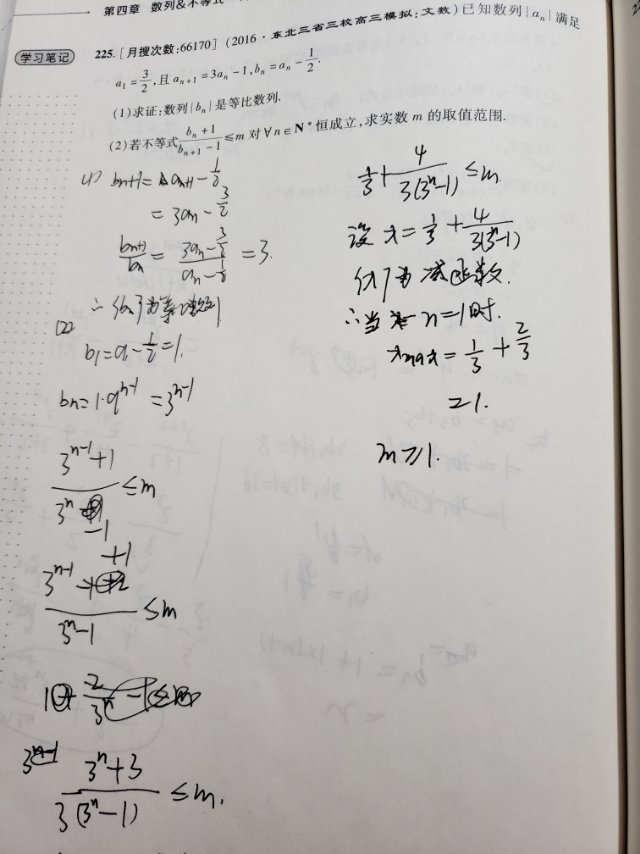 第四章 数列&不等式
学习笔记
225. [月搜次数:66170] (2016·东北三省三校高三模拟:文数)已知数列{aₙ}满足
a₁=3/2,且aₙ₊₁=3aₙ-1,bₙ=aₙ-1/2.
(1)求证:数列{bₙ}是等比数列.
(2)若不等式(bₙ+1)/(bₙ₊₁-1)≤m对∀n∈N*恒成立,求实数m的取值范围.
(1) bₙ₊₁=aₙ₊₁-1/2
=3aₙ-3/2
bₙ₊₁/bₙ=(3aₙ-3/2)/(aₙ-1/2)=3.
∴{bₙ}为等比数列
(2)
b₁=a₁-1/2=1.
bₙ=1·qⁿ⁻¹=3ⁿ⁻¹
(3ⁿ⁻¹+1)/(3ⁿ-1)≤m
(3ⁿ⁻¹+1)/(3ⁿ-1)≤m
(3ⁿ+3)/(3(3ⁿ-1))≤m.
1/3+4/(3(3ⁿ-1))≤m
设x=1/3+4/(3(3ⁿ-1))
为减函数.
∴当n=1时.
xmax=1/3+2/3
=1.
m≥1.